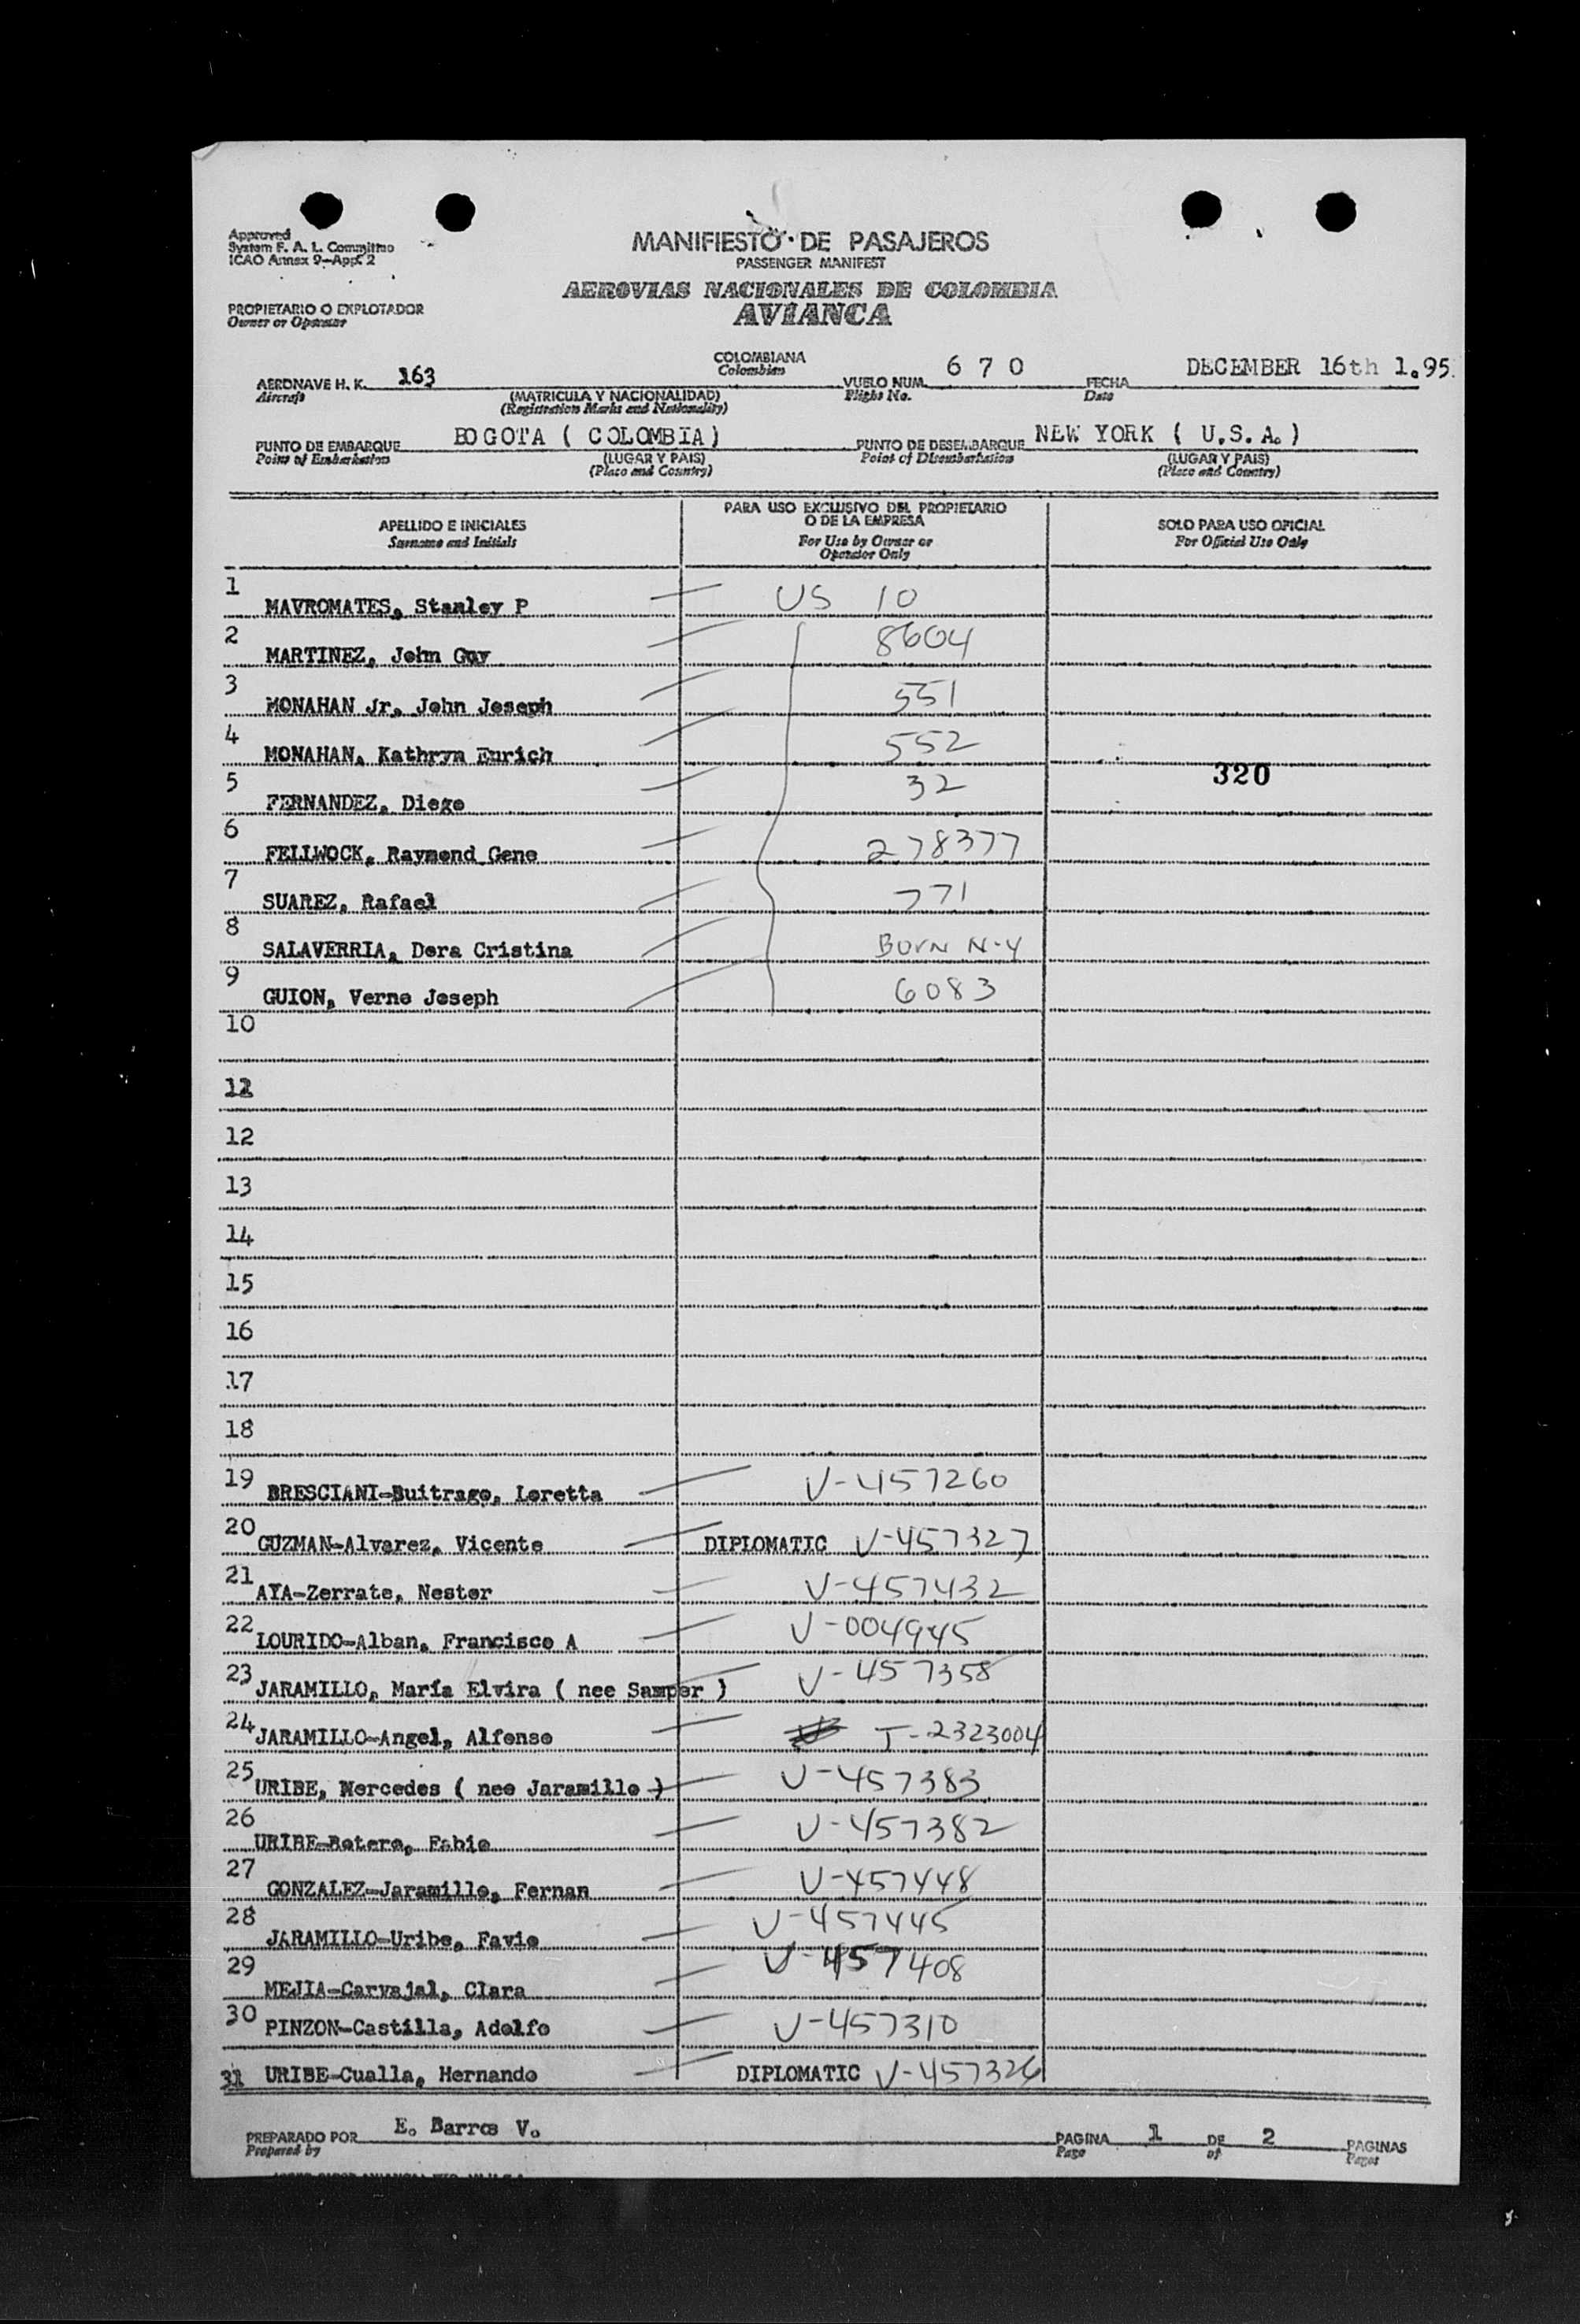 Approved
System F. A. L. Committee
ICAO Annex 9-App. 2
MANIFIESTO DE PASAJEROS
PASSENGER MANIFEST
AEROVIAS NACIONALES DE COLOMBIA
AVIANCA
PROPIETARIO O EXPLOTADOR
Owner or Operator
AERONAVE H. K. 163 COLOMBIANA VUELO NUM. 6 7 0 FECHA DECEMBER 16th 1.95
Aircraft Colombian Flight No. Date
(MATRICULA Y NACIONALIDAD)
(Registration Marks and Nationality)
PUNTO DE EMBARQUE BOGOTA ( COLOMBIA ) PUNTO DE DESEMBARQUE NEW YORK ( U.S.A. )
Point of Embarkation (LUGAR Y PAIS) Point of Disembarkation (LUGAR Y PAIS)
(Place and Country) (Place and Country)
APELLIDO E INICIALES
Surname and Initials
PARA USO EXCLUSIVO DEL PROPIETARIO
O DE LA EMPRESA
For Use by Owner or
Operator Only
SOLO PARA USO OFICIAL
For Official Use Only
1 MAVROMATES, Stanley P US 10
2 MARTINEZ, John Guy 8604
3 MONAHAN Jr, John Joseph 551
4 MONAHAN, Kathryn Eurich 552
320
5 FERNANDEZ, Diego 32
6 FELLWOCK, Raymond Gene 278377
7 SUAREZ, Rafael 771
8 SALAVERRIA, Dora Cristina BORN N-Y
9 GUION, Verne Joseph 6083
10
11
12
13
14
15
16
17
18
19 BRESCIANI-Buitrago, Loretta V-457260
20 GUZMAN-Alvarez, Vicente DIPLOMATIC V-457327
21 AYA-Zerrate, Nestor V-457432
22 LOURIDO-Alban, Francisco A V-004945
23 JARAMILLO, María Elvira ( nee Samper ) V-457358
24 JARAMILLO-Angel, Alfonso T-2323004
25 URIBE, Mercedes ( nee Jaramillo ) V-457383
26 URIBE-Botero, Fabio V-457382
27 GONZALEZ-Jaramillo, Fernan V-457448
28 JARAMILLO-Uribe, Favio V-457445
29 MEJIA-Carvajal, Clara V-457408
30 PINZON-Castilla, Adolfo V-457310
31 URIBE-Cualla, Hernando DIPLOMATIC V-457326
PREPARADO POR E. Barros V. PAGINA 1 DE 2 PAGINAS
Prepared by Page of Pages